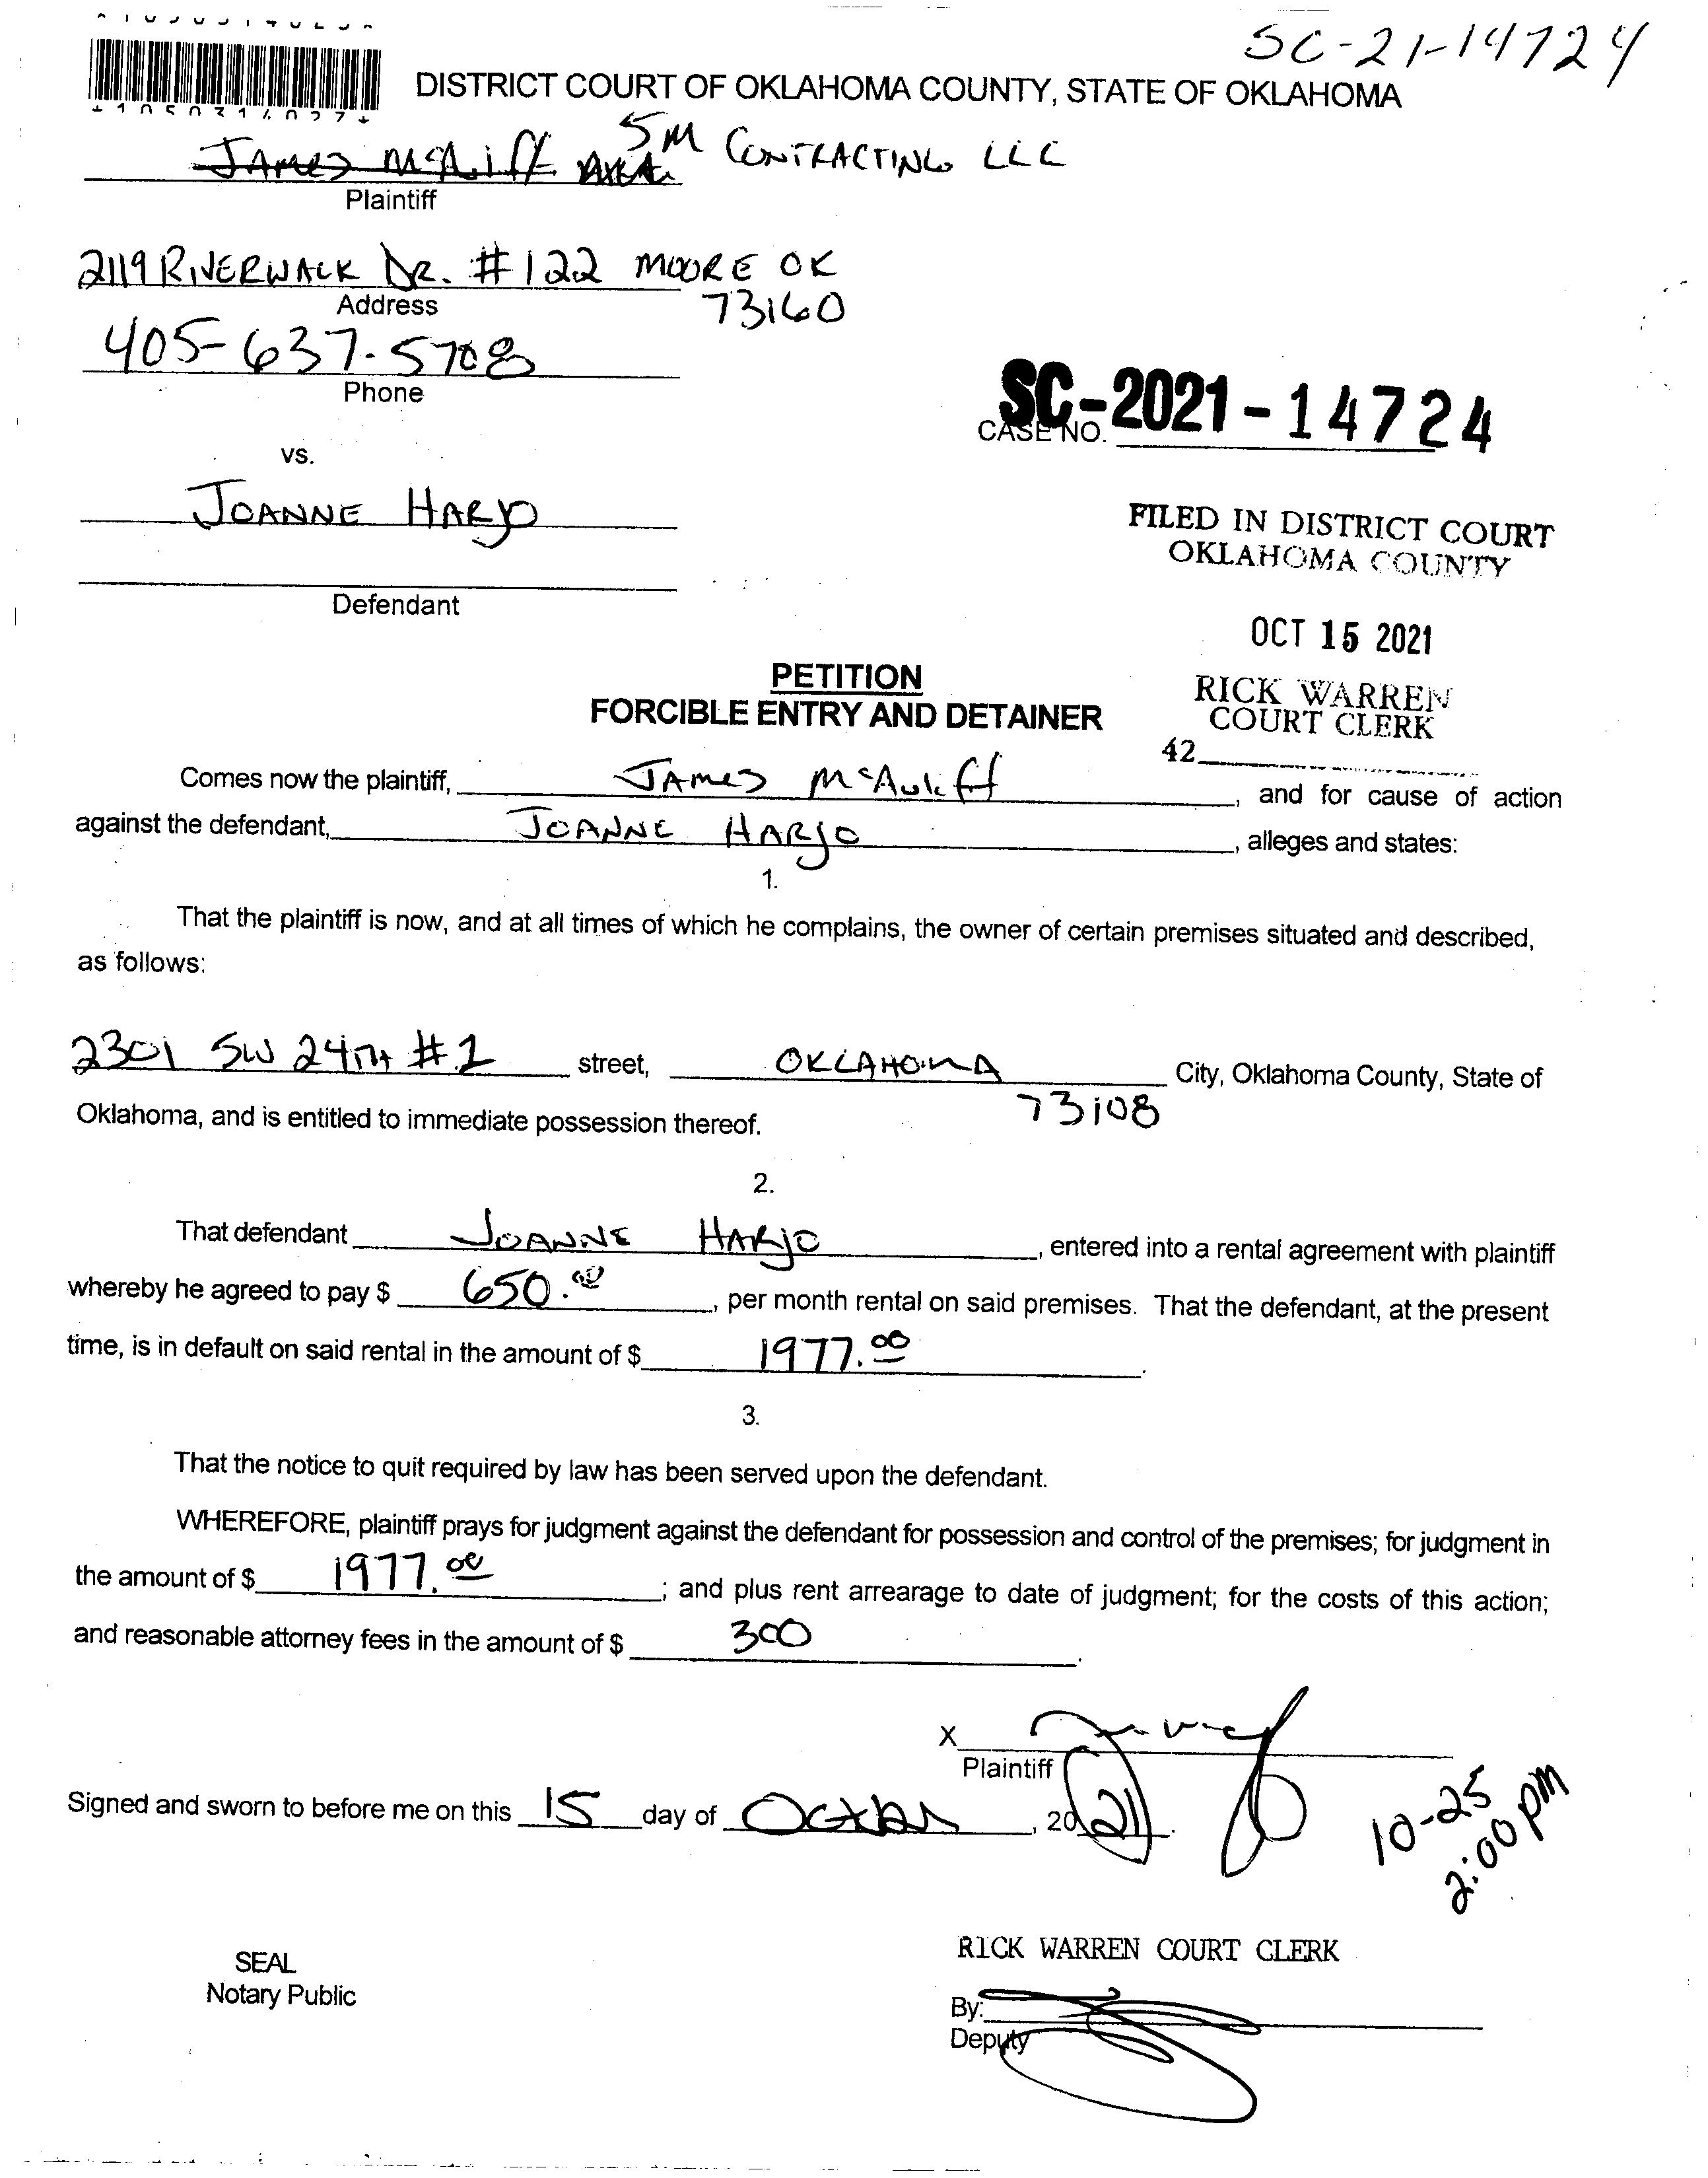 SC-21-14724
DISTRICT COURT OF OKLAHOMA COUNTY, STATE OF OKLAHOMA
James McAuliff AKA 5M Contracting LLC
Plaintiff
2119 Riverwalk Dr. #122 Moore OK
Address
73160
405-637-5708
Phone
SC-2021-14724
CASE NO.
vs.
Joanne Harjo
FILED IN DISTRICT COURT
OKLAHOMA COUNTY
Defendant
OCT 15 2021
PETITION
FORCIBLE ENTRY AND DETAINER
RICK WARREN
COURT CLERK
42
Comes now the plaintiff, James McAuliff, and for cause of action
against the defendant, Joanne Harjo, alleges and states:
1.
That the plaintiff is now, and at all times of which he complains, the owner of certain premises situated and described,
as follows:
2301 SW 24th #1 street, Oklahoma City, Oklahoma County, State of
73108
Oklahoma, and is entitled to immediate possession thereof.
2.
That defendant Joanne Harjo, entered into a rental agreement with plaintiff
whereby he agreed to pay $ 650.00, per month rental on said premises. That the defendant, at the present
time, is in default on said rental in the amount of $ 1977.00.
3.
That the notice to quit required by law has been served upon the defendant.
WHEREFORE, plaintiff prays for judgment against the defendant for possession and control of the premises; for judgment in
the amount of $ 1977.00; and plus rent arrearage to date of judgment; for the costs of this action;
and reasonable attorney fees in the amount of $ 300.
X
Plaintiff
Signed and sworn to before me on this 15 day of October, 2021.
10-25
2:00 pm
RICK WARREN COURT CLERK
SEAL
Notary Public
By:
Deputy